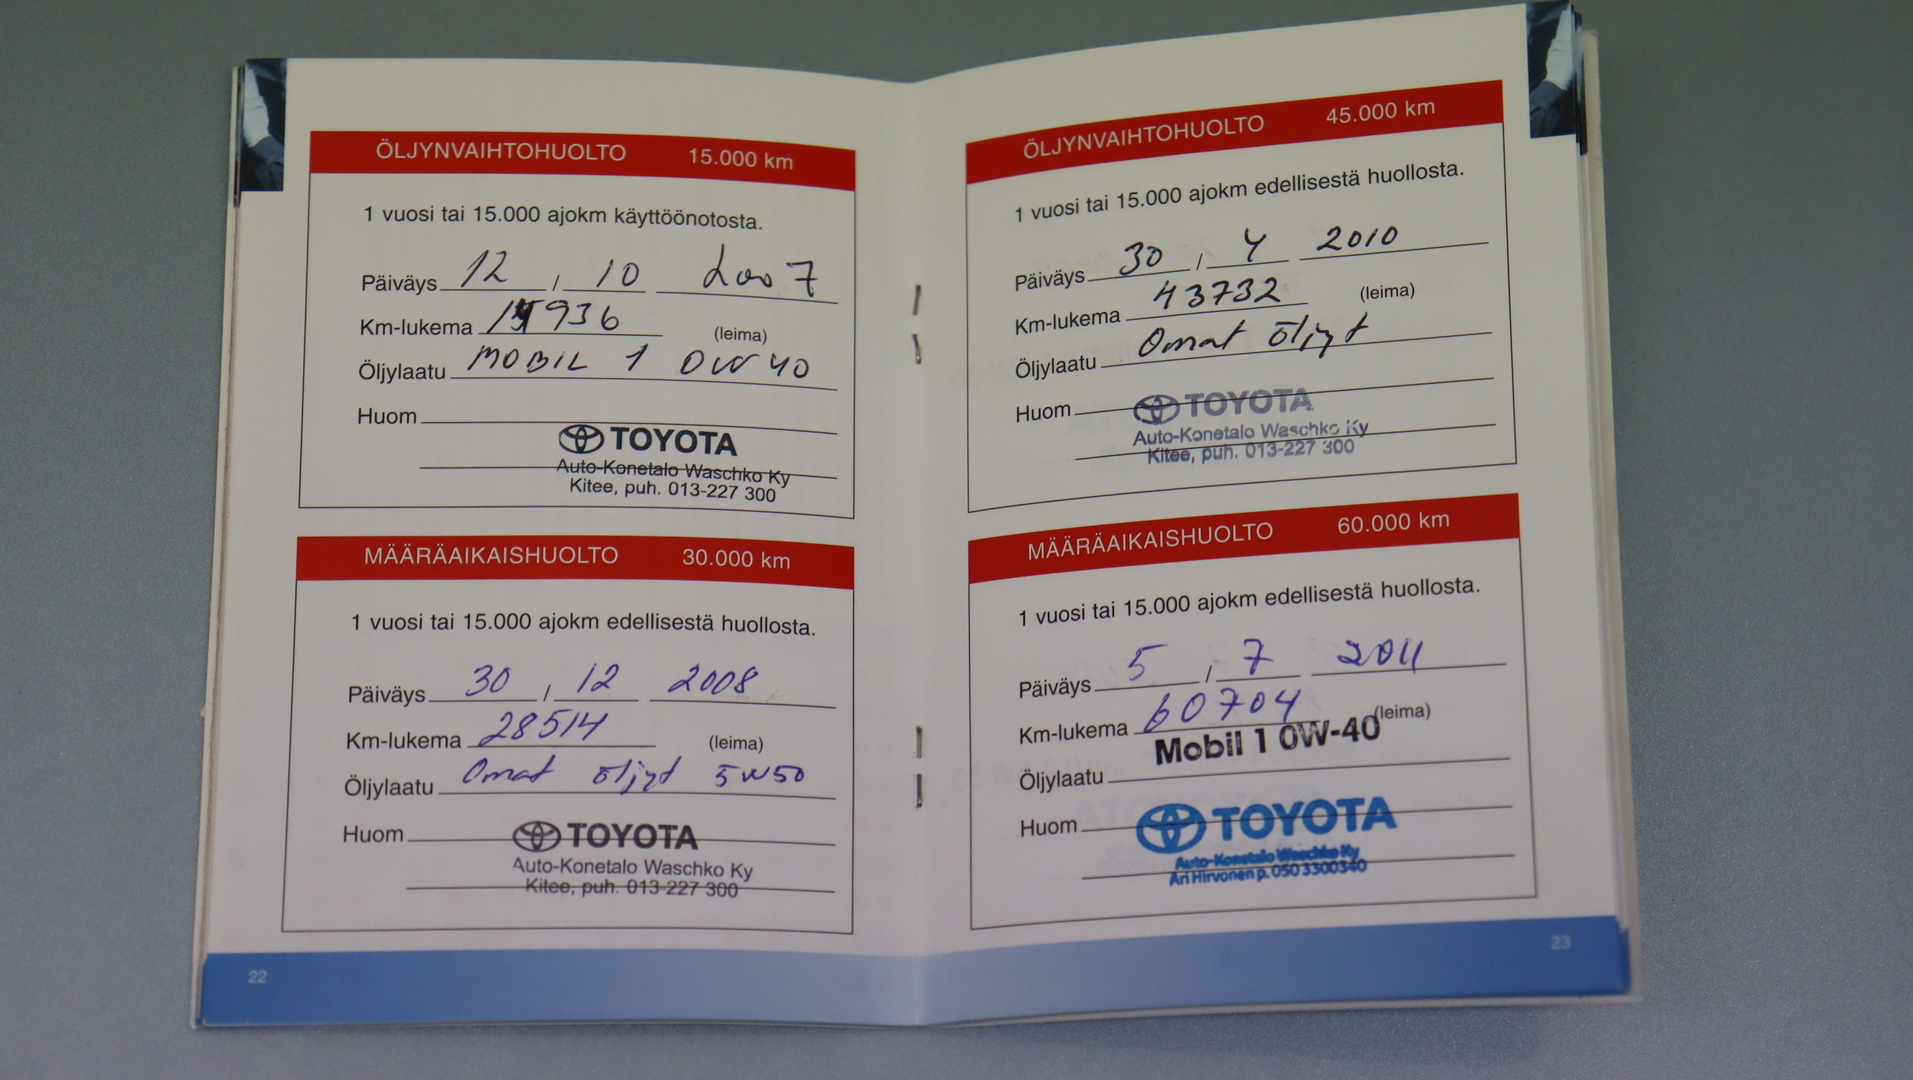 ÖLJYNVAIHTOHUOLTO 15.000 km
1 vuosi tai 15.000 ajokm käyttöönotosta.
Päiväys 12 / 10 2007
Km-lukema 936
(leima)
Öljylaatu MOBIL 1 0W40
Huom
TOYOTA
Auto-Konetalo Waschko Ky
Kitee, puh. 013-227 300
MÄÄRÄAIKAISHUOLTO 30.000 km
1 vuosi tai 15.000 ajokm edellisestä huollosta.
Päiväys 30 / 12 2008
Km-lukema 28514
(leima)
Öljylaatu Omat öljyt 5W50
Huom
TOYOTA
Auto-Konetalo Waschko Ky
Kitee, puh. 013-227 300
22
ÖLJYNVAIHTOHUOLTO 45.000 km
1 vuosi tai 15.000 ajokm edellisestä huollosta.
Päiväys 30 / 4 2010
Km-lukema 43732
(leima)
Öljylaatu Omat öljyt
Huom
TOYOTA
Auto-Konetalo Waschko Ky
Kitee, puh. 013-227 300
MÄÄRÄAIKAISHUOLTO 60.000 km
1 vuosi tai 15.000 ajokm edellisestä huollosta.
Päiväys 5 / 7 2011
Km-lukema 60704
(leima)
Mobil 1 0W-40
Öljylaatu
Huom
TOYOTA
Auto-Konetalo Waschko Ky
Ari Hirvonen p. 050 3300340
23